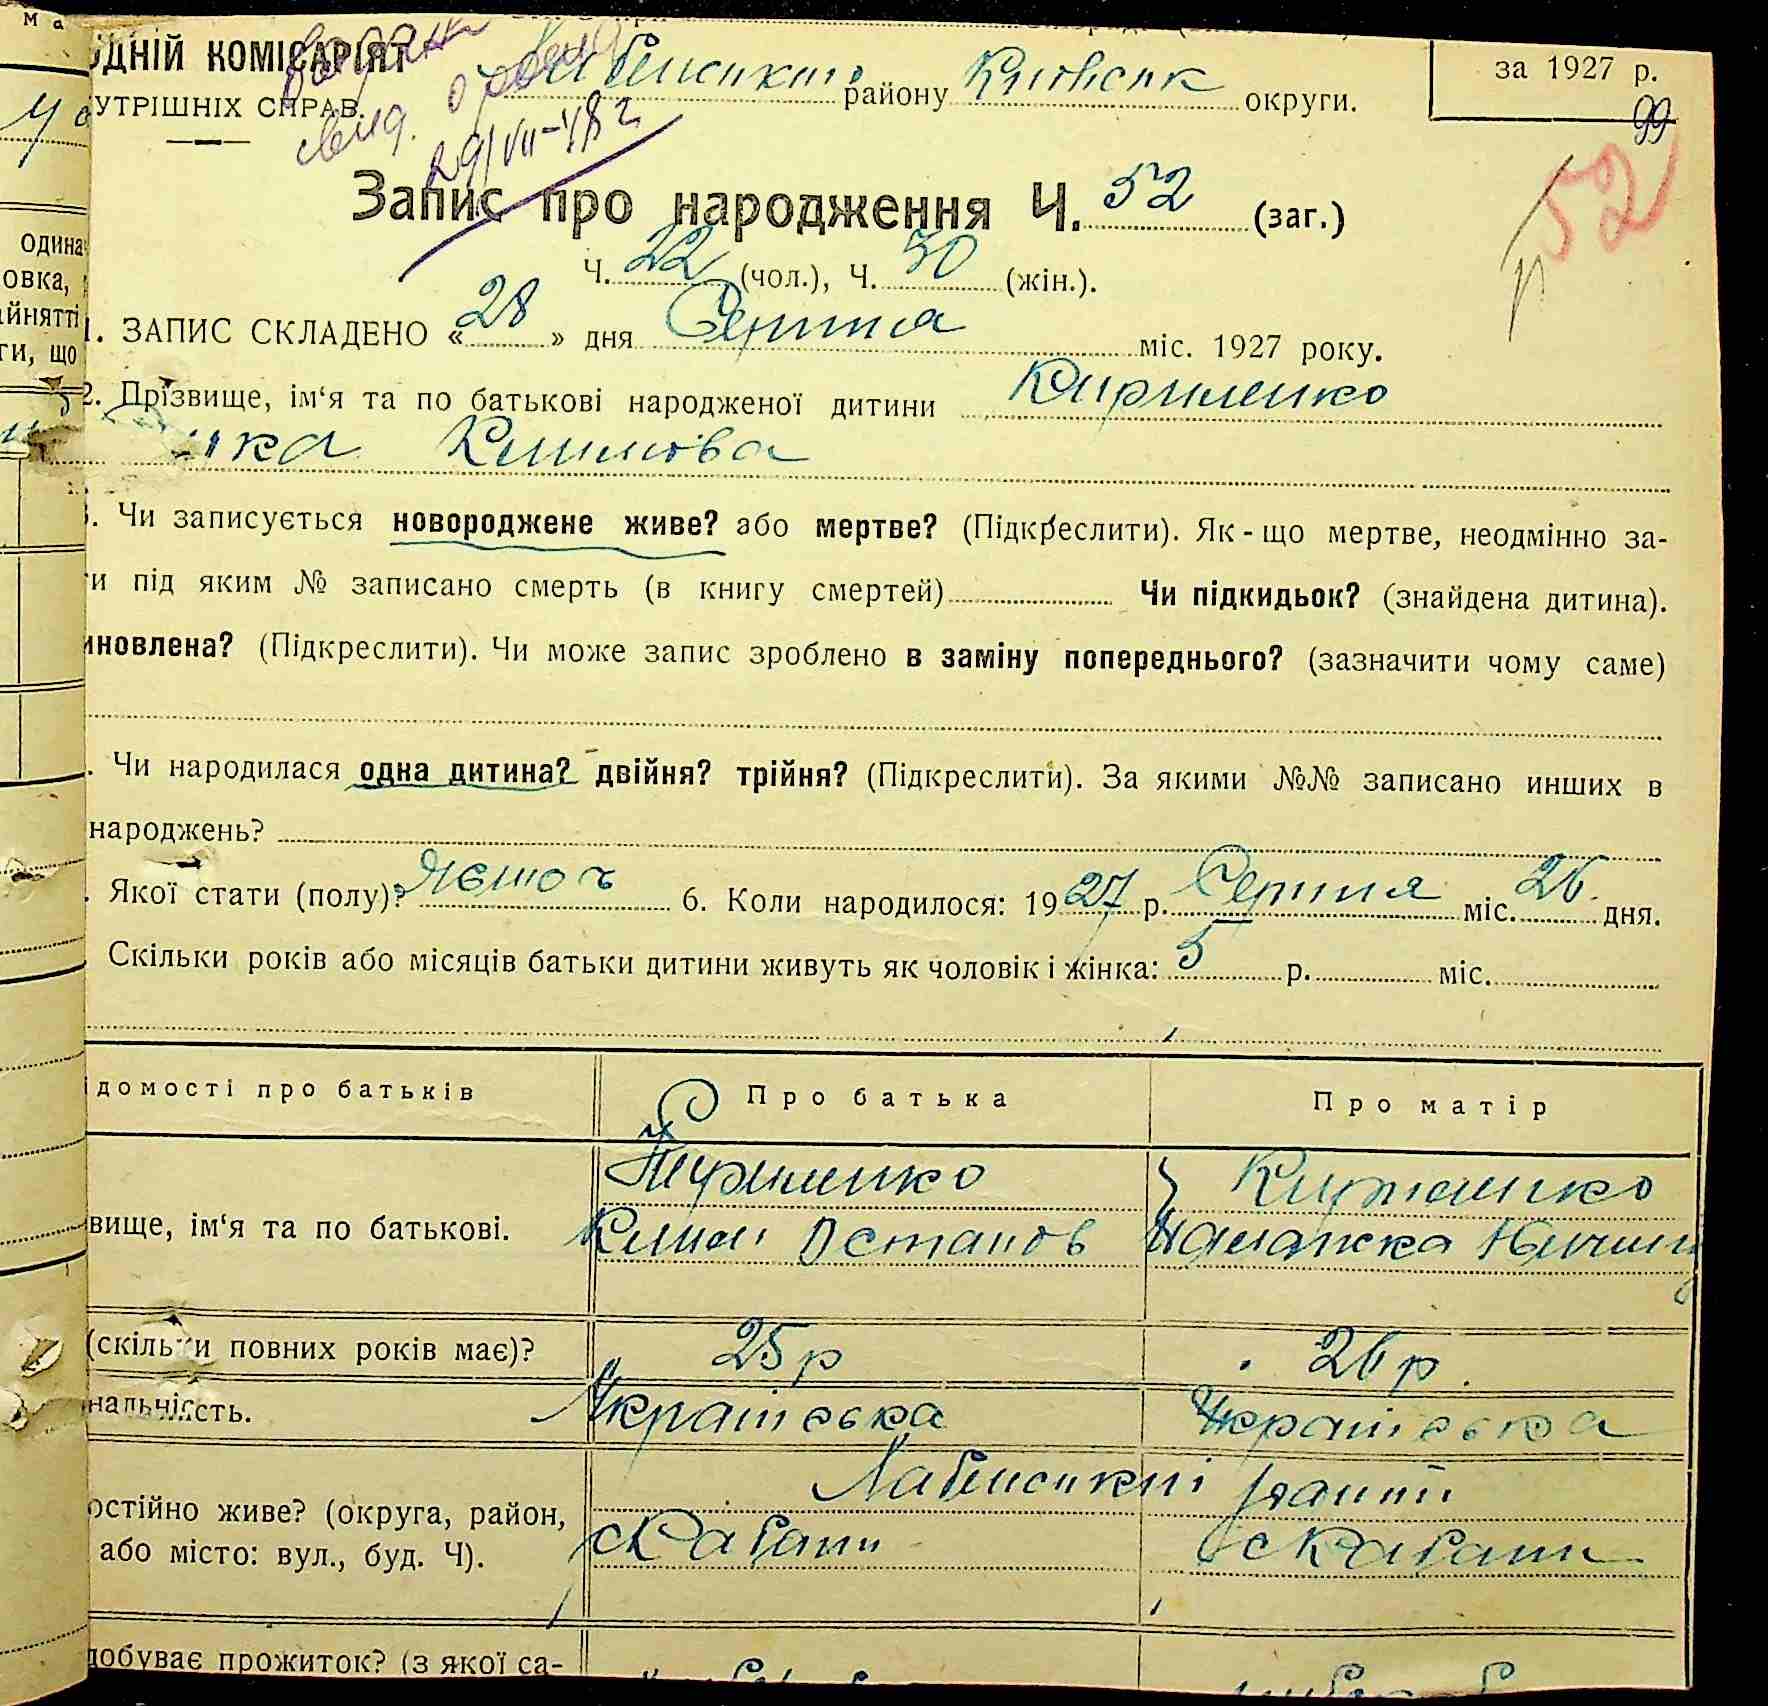 ОДНІЙ КОМІСАРІЯТ
УТРІШНІХ СПРАВ.
району Київськ округи.
за 1927 р.
99
29/VII-48 г
52
Запис про народження Ч. 52 (заг.)
Ч. 22 (чол.), Ч. 30 (жін.).
1. ЗАПИС СКЛАДЕНО « 28 » дня Серпня міс. 1927 року.
2. Прізвище, ім'я та по батькові народженої дитини Кириленко
Климова
3. Чи записується новороджене живе? або мертве? (Підкреслити). Як-що мертве, неодмінно за-
ти під яким № записано смерть (в книгу смертей) Чи підкидьок? (знайдена дитина).
иновлена? (Підкреслити). Чи може запис зроблено в заміну попереднього? (зазначити чому саме)
. Чи народилася одна дитина? двійня? трійня? (Підкреслити). За якими №№ записано инших в
народжень?
. Якої стати (полу)? 6. Коли народилося: 1927 р. Серпня міс. 26 дня.
Скільки років або місяців батьки дитини живуть як чоловік і жінка: 5 р. міс.
ідомості про батьків Про батька Про матір
Кириленко Кириленко
вище, ім'я та по батькові. Клим Остапов
(скільки повних років має)? 25 р 26 р.
нальність. Українська Українська
район
остійно живе? (округа, район, с Кабани с Кабани
або місто: вул., буд. Ч).
добуває прожиток? (з якої са-